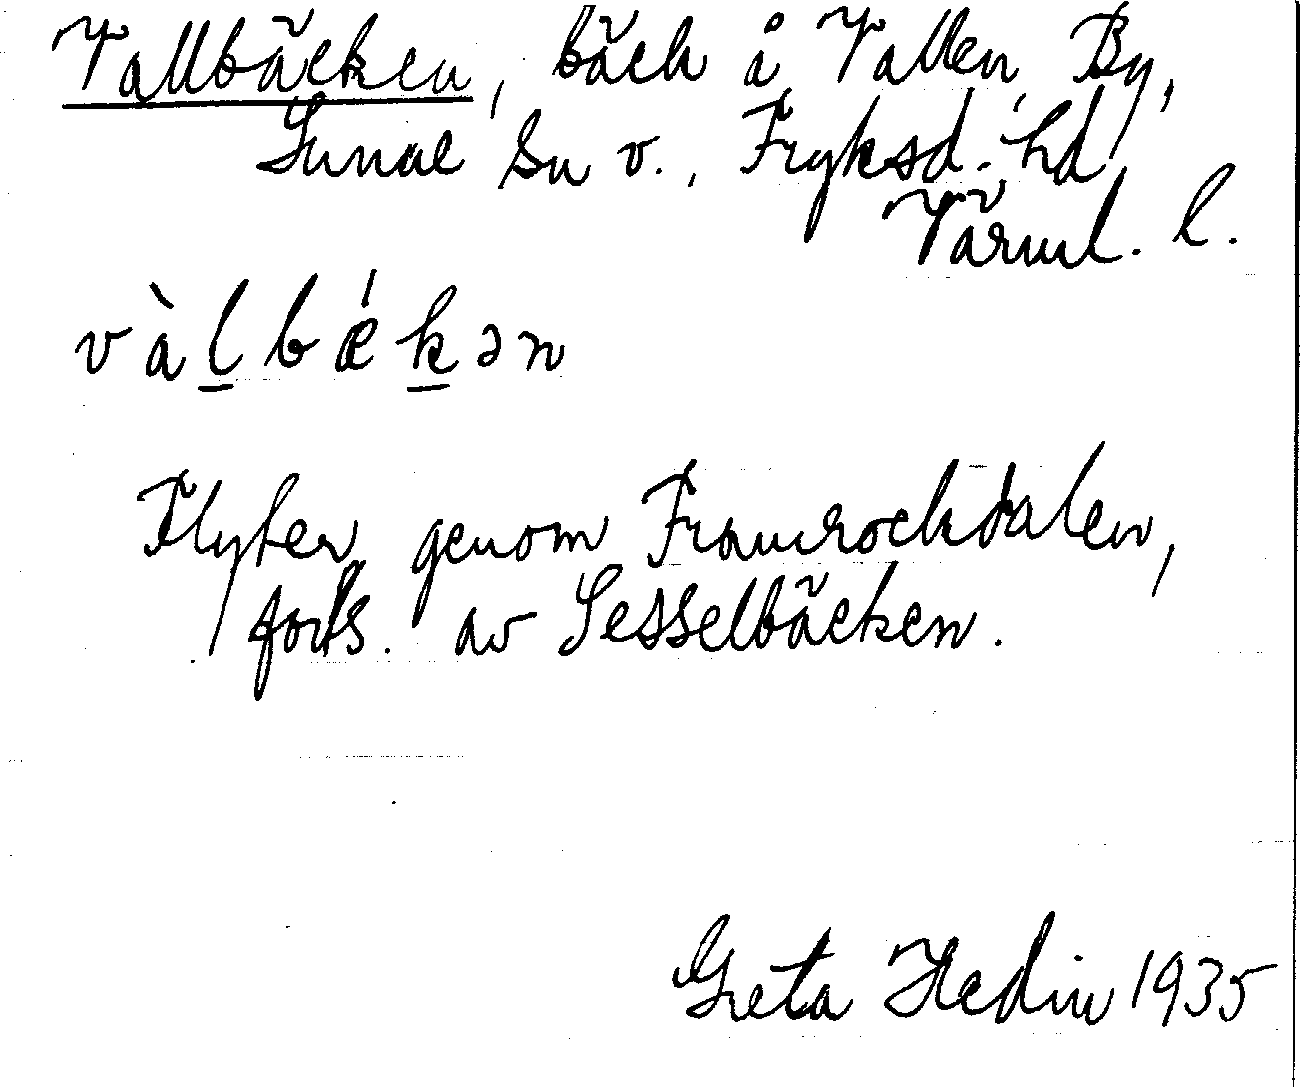 Vallbäcken, bäck å Vallen, By,
Sunne sn v., Fryksd. hd,
Värml. l.
vàlbǽkən
Flyter genom Framrockdalen,
forts. av Sesselbäcken.
Greta Hedin 1935